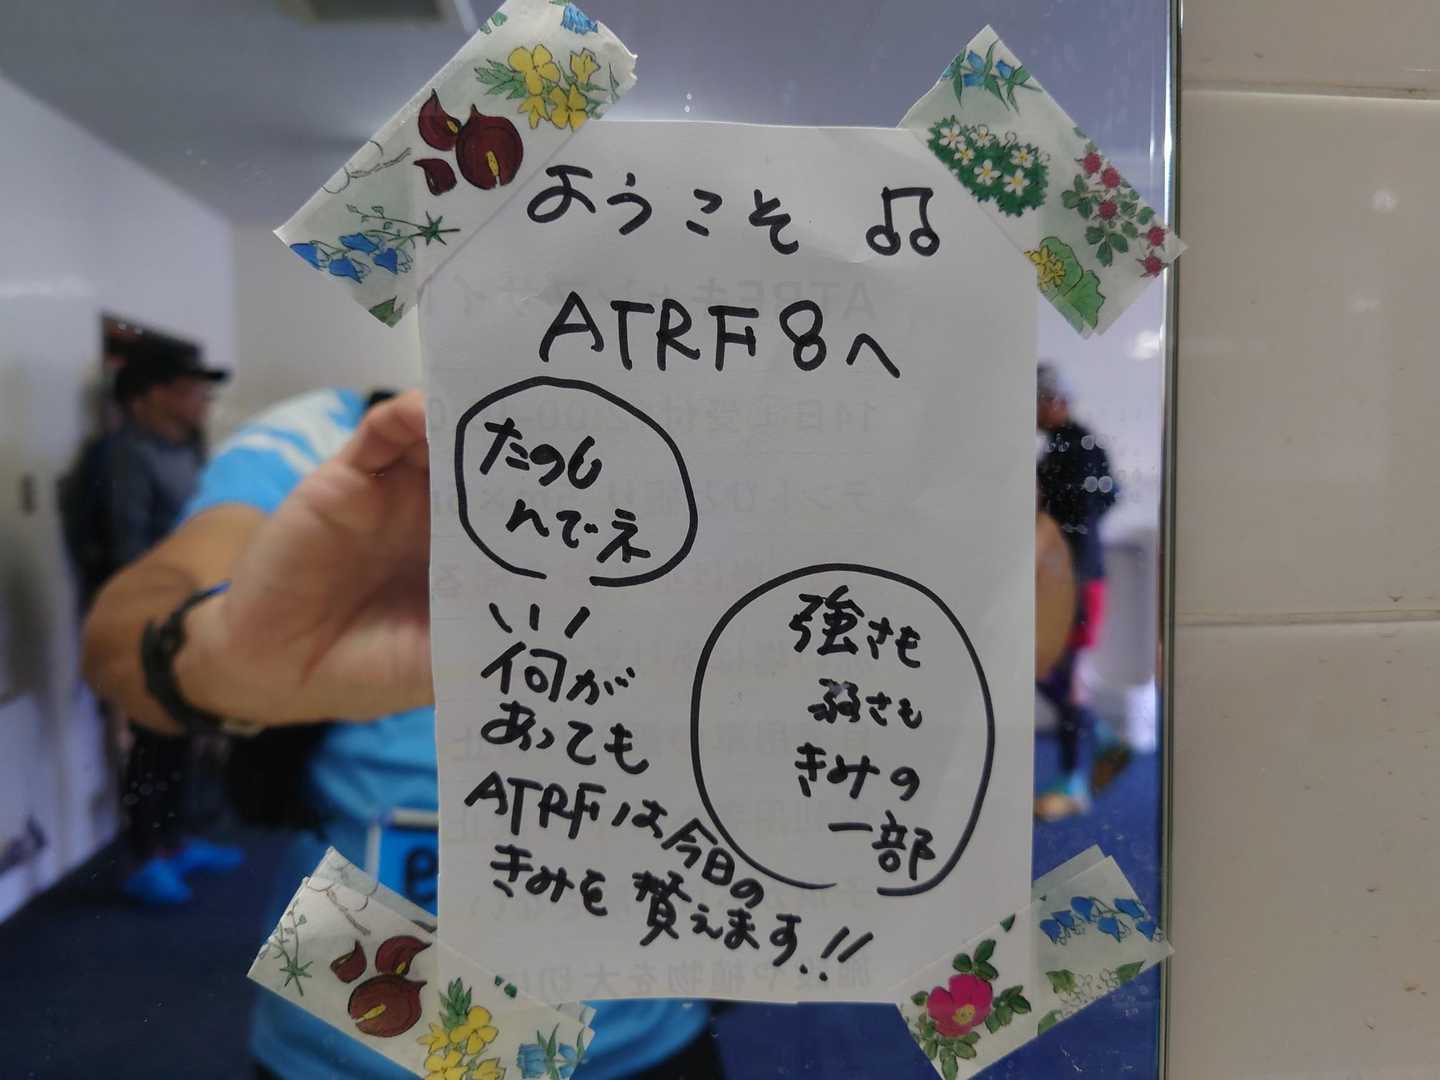 ようこそ ♫
ATRF8へ
たのし
んでネ
何が
あっても
ATRFは今日の
きみを 賛えます!!
強さも
弱さも
きみの
一部